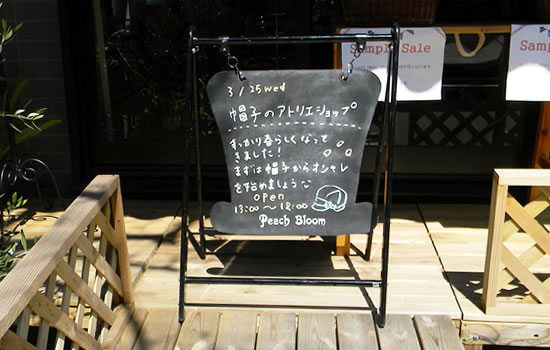 3/25 wed
帽子のアトリエショップ
すっかり春らしくなって
きました!
まずは帽子からオシャレ
を始めましょう
open
13:00~18:00
Peach Bloom
Sample Sale
Sample